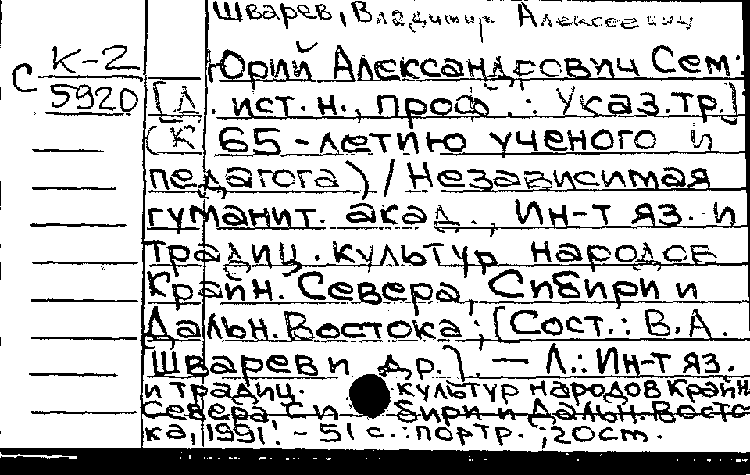 Шварев, Владимир Алексеевич
С К-2 Юрий Александрович Сем.
5920 [Д. ист. н., проф.: Указ. тр.]
(К 65-летию ученого и
педагога) / Независимая
гуманит. акад., Ин-т яз. и
традиц. культур народов
Крайн. Севера, Сибири и
Дальн. Востока; [Сост.: В.А.
Шварев и др.]. — Л.: Ин-т яз.
и традиц. культур народов Крайн.
Севера, Сибири и Дальн. Восто-
ка, 1991. - 51 с.: портр.; 20 см.